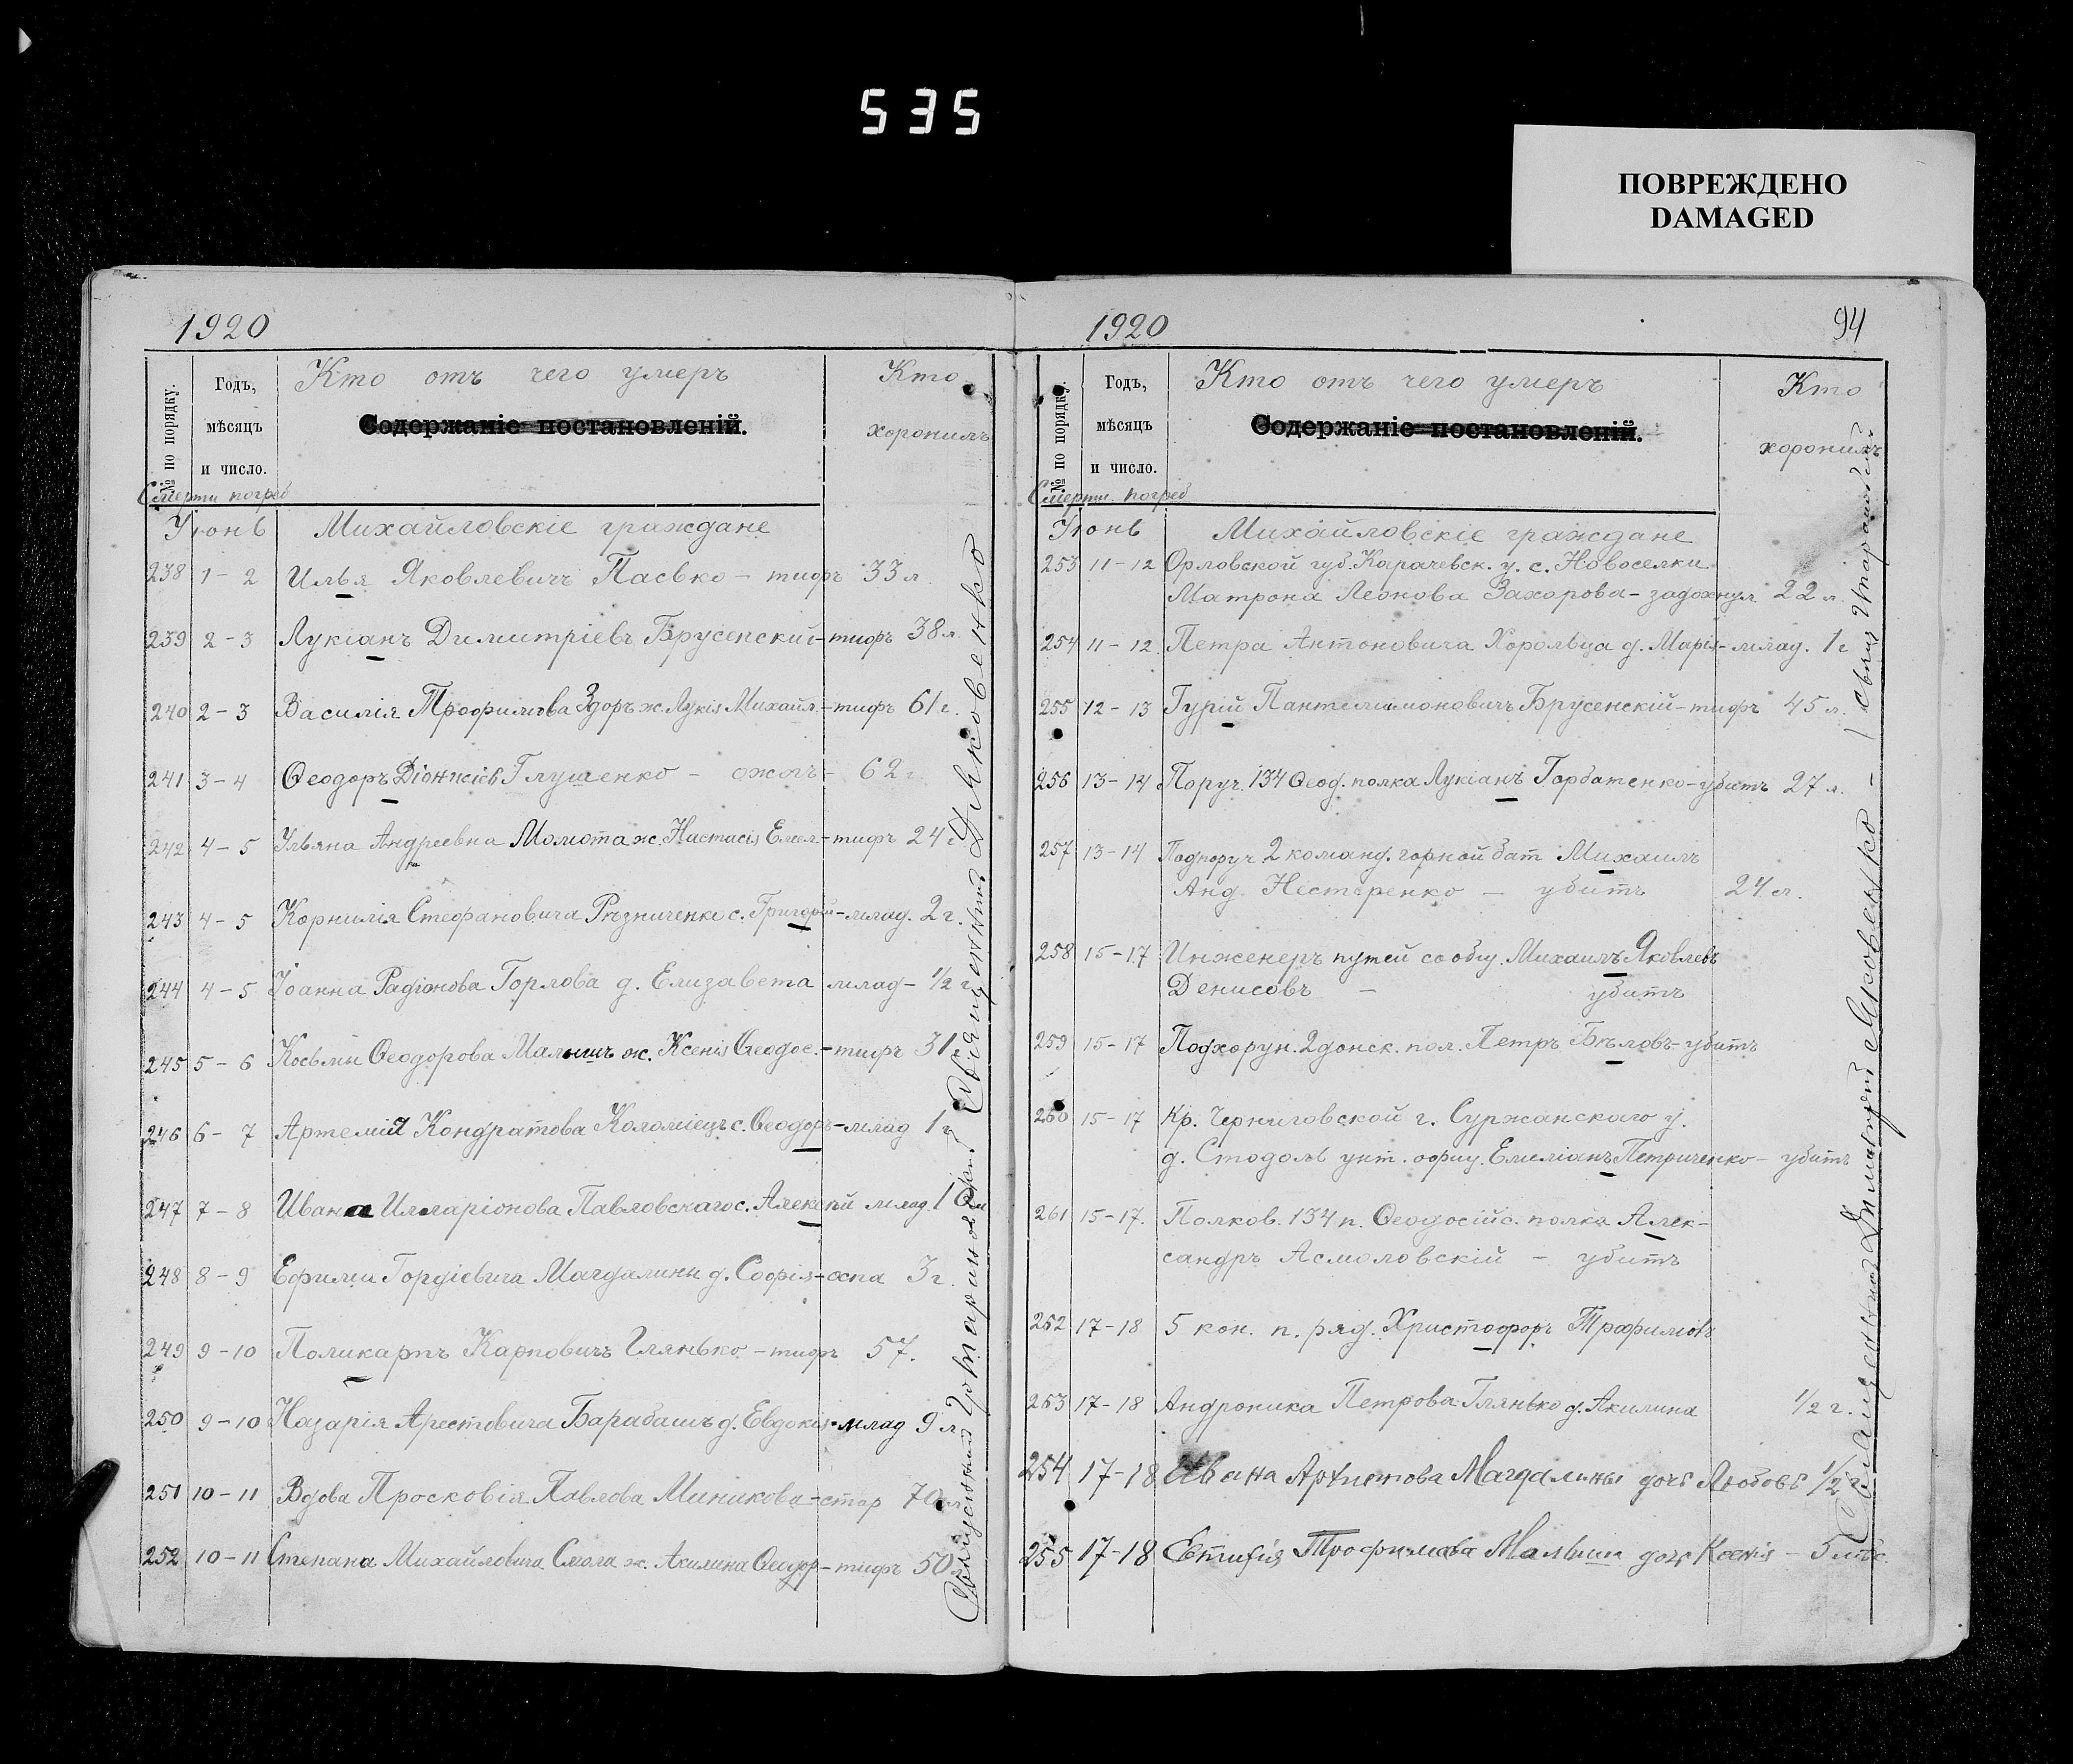 535
ПОВРЕЖДЕНО
DAMAGED
1920
№ по порядку.
Годъ,
мѣсяцъ
и число.
Кто отъ чего умеръ
Содержаніе постановленій.
Кто
хоронилъ
Смерти погреб
Іюнь Михайловскіе граждане
238 1-2 Илья Яковлевичъ Пасько - тифъ 33 л.
239 2-3 Лукіанъ Димитріевъ Брусенскій - тифъ 38 л.
240 2-3 Василія Трофимова Здоръ ж. Лукія Михайл. - тифъ 61 г.
241 3-4 Ѳеодоръ Діонисіевъ Глушенко - ожогъ - 62 г.
242 4-5 Ульяна Андреевна Момота ж. Настасія Емел. - тифъ 24 г.
243 4-5 Корнилія Стефановича Рѣзниченко с. Григорій - млад. 2 г.
244 4-5 Іоанна Радіонова Горлова д. Елизавета млад - 1/2 г
245 5-6 Косьмы Ѳеодорова Малышъ ж. Ксенія Ѳеодос. - тифъ 31 г.
246 6-7 Артемія Кондратова Коломіецъ с. Ѳеодоръ - млад 1 г
247 7-8 Ивана Илларіонова Павловскаго с. Алексѣй млад. 10 м
248 8-9 Ефима Гордіевича Магдалины д. Софія - оспа 3 г.
249 9-10 Поликарпъ Карповичъ Глянько - тифъ 57.
250 9-10 Назарія Арестовича Барабашъ д. Евдокія - млад 9 л
251 10-11 Вдова Просковія Павлова Миникова - стар 70 л
252 10-11 Степана Михайловича Смола ж. Акилина Ѳеодор - тифъ 50
Священникъ Д Яковенко
1920
94
№ по порядку.
Годъ,
мѣсяцъ
и число.
Кто отъ чего умеръ
Содержаніе постановленій.
Кто
хоронилъ
Смерти погреб
Іюнь Михайловскіе граждане
253 11-12 Орловской губ. Карачевск. у. с. Новоселки
Матрона Леонова Захорова - задохнул 22 л.
254 11-12 Петра Антоновича Хорольца д. Марія - млад. 1 г
255 12-13 Гурій Пантелимоновичъ Брусенскій - тифъ 45 л.
256 13-14 Поруч. 134 Ѳеод. полка Лукіанъ Горбатенко - убитъ 27 л.
257 13-14 Подпоруч 2 команд. горной бат Михаилъ
Анд Нестеренко - убитъ 24 л.
258 15-17 Инженеръ путей сообщ. Михаилъ Яковлевъ
Денисовъ - убитъ
259 15-17 Подхорун. 2 донск. пол. Петръ Бѣловъ - убитъ
260 15-17 Кр. Черниговской г. Суржанскаго у.
д. Стодолъ унт. офиц. Емеліанъ Петриченко - убитъ
261 15-17. Полков. 134 п. Ѳеодосійс. полка Алек-
сандръ Асмоловскій - убитъ
262 17-18 5 кон. п. ряд. Христофоръ Трофимовъ
263 17-18 Андроника Петрова Глянько д. Акилина 1/2 г.
254 17-18 Ивана Архипова Магдалины дочь Любовь 1/2 г
255 17-18 Евтифія Трофимова Малыша дочь Ксенія - 5 мѣс.
Священникъ Димитрій Яковенко -